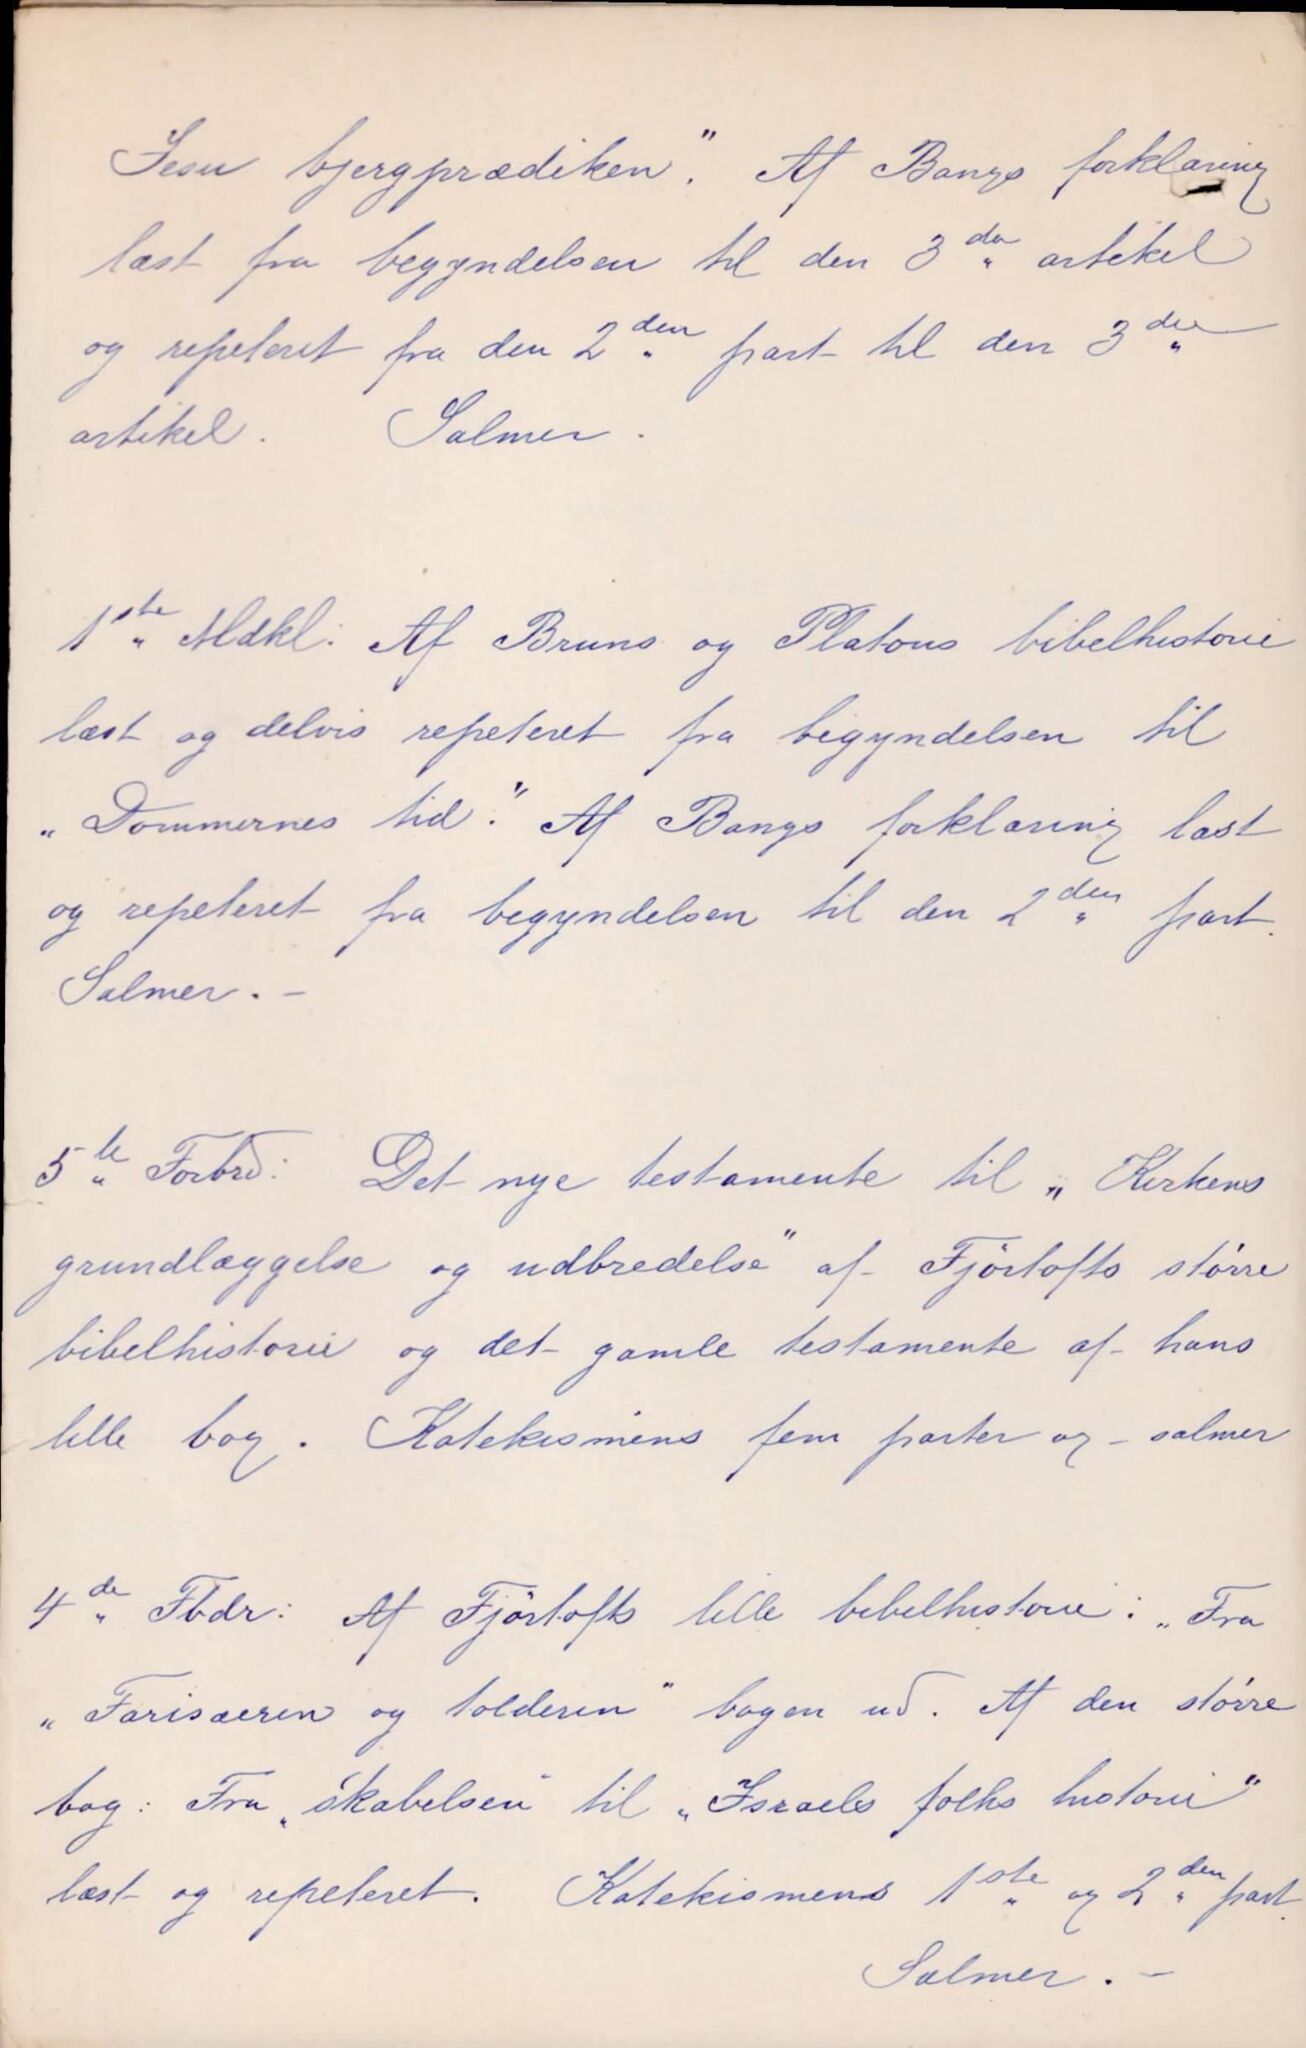 Jesu bjergprædiken". Af Bangs forklaring
læst fra begyndelsen til den 3die artikel
og repeteret fra den 2den part til den 3die
artikel. Salmer.
1ste Mdkl: Af Bruns og Platous bibelhistorie
læst og delvis repeteret fra begyndelsen til
„Dommernes tid". Af Bangs forklaring læst
og repeteret fra begyndelsen til den 2den part.
Salmer. –
5te Forbrd: Det nye testamente til „Kirkens
grundlæggelse og udbredelse" af Fjörtofts större
bibelhistorie og det gamle testamente af hans
lille bog. Katekismens fem parter og salmer
4de Fbdr: Af Fjörtofts lille bibelhistorie: „Fra
„Farisæeren og tolderen" bogen ud. Af den större
bog: Fra „skabelsen" til „Israels folks historie"
læst og repeteret. Katekismens 1ste og 2den part.
Salmer. –